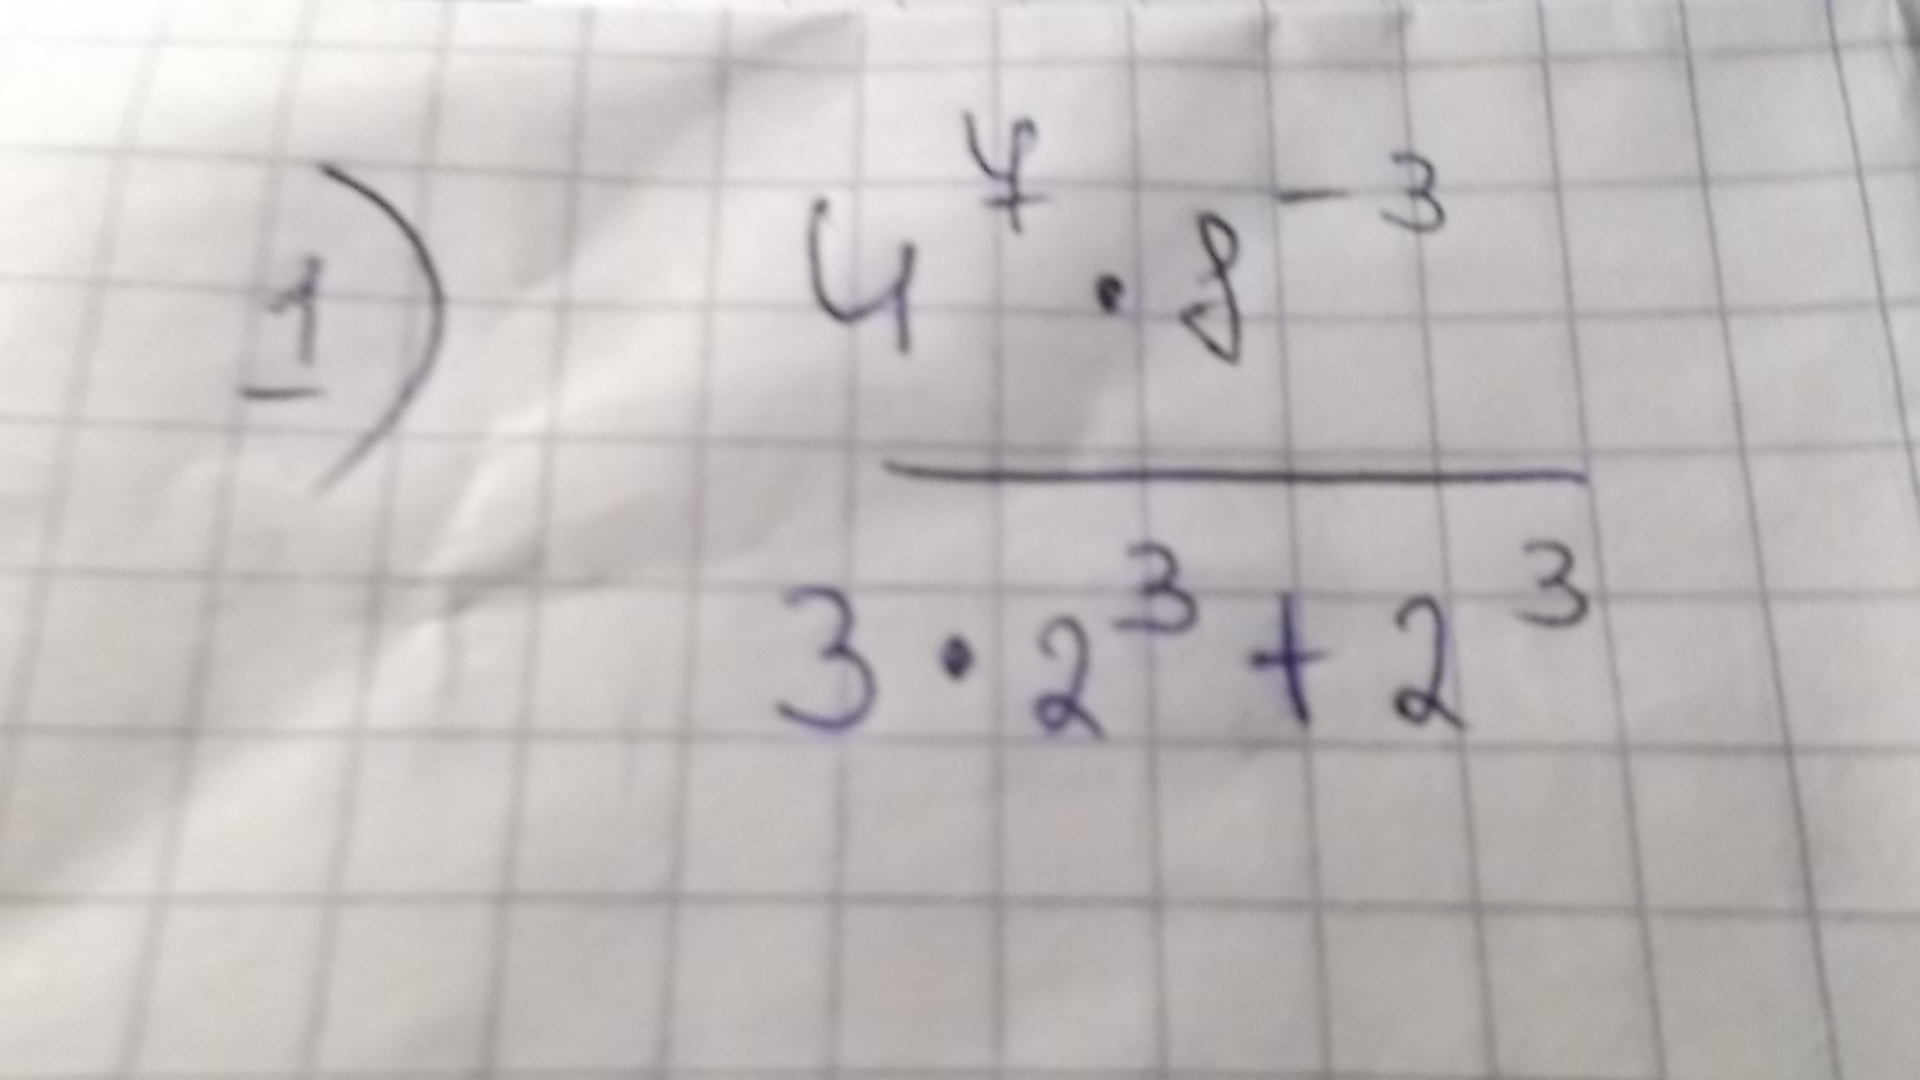 1) 4⁷ · 8⁻³
3 · 2³ + 2³